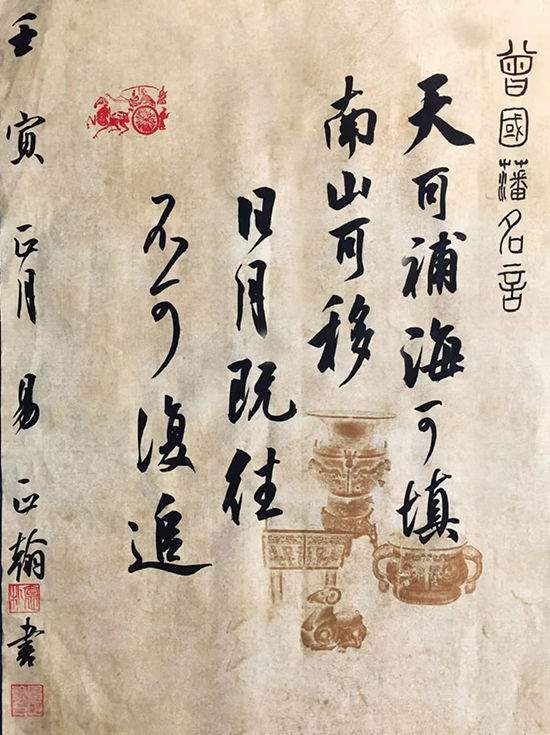 曾國藩名言
天可補海可填
南山可移
日月既往
不可復追
壬寅正月易正翰書